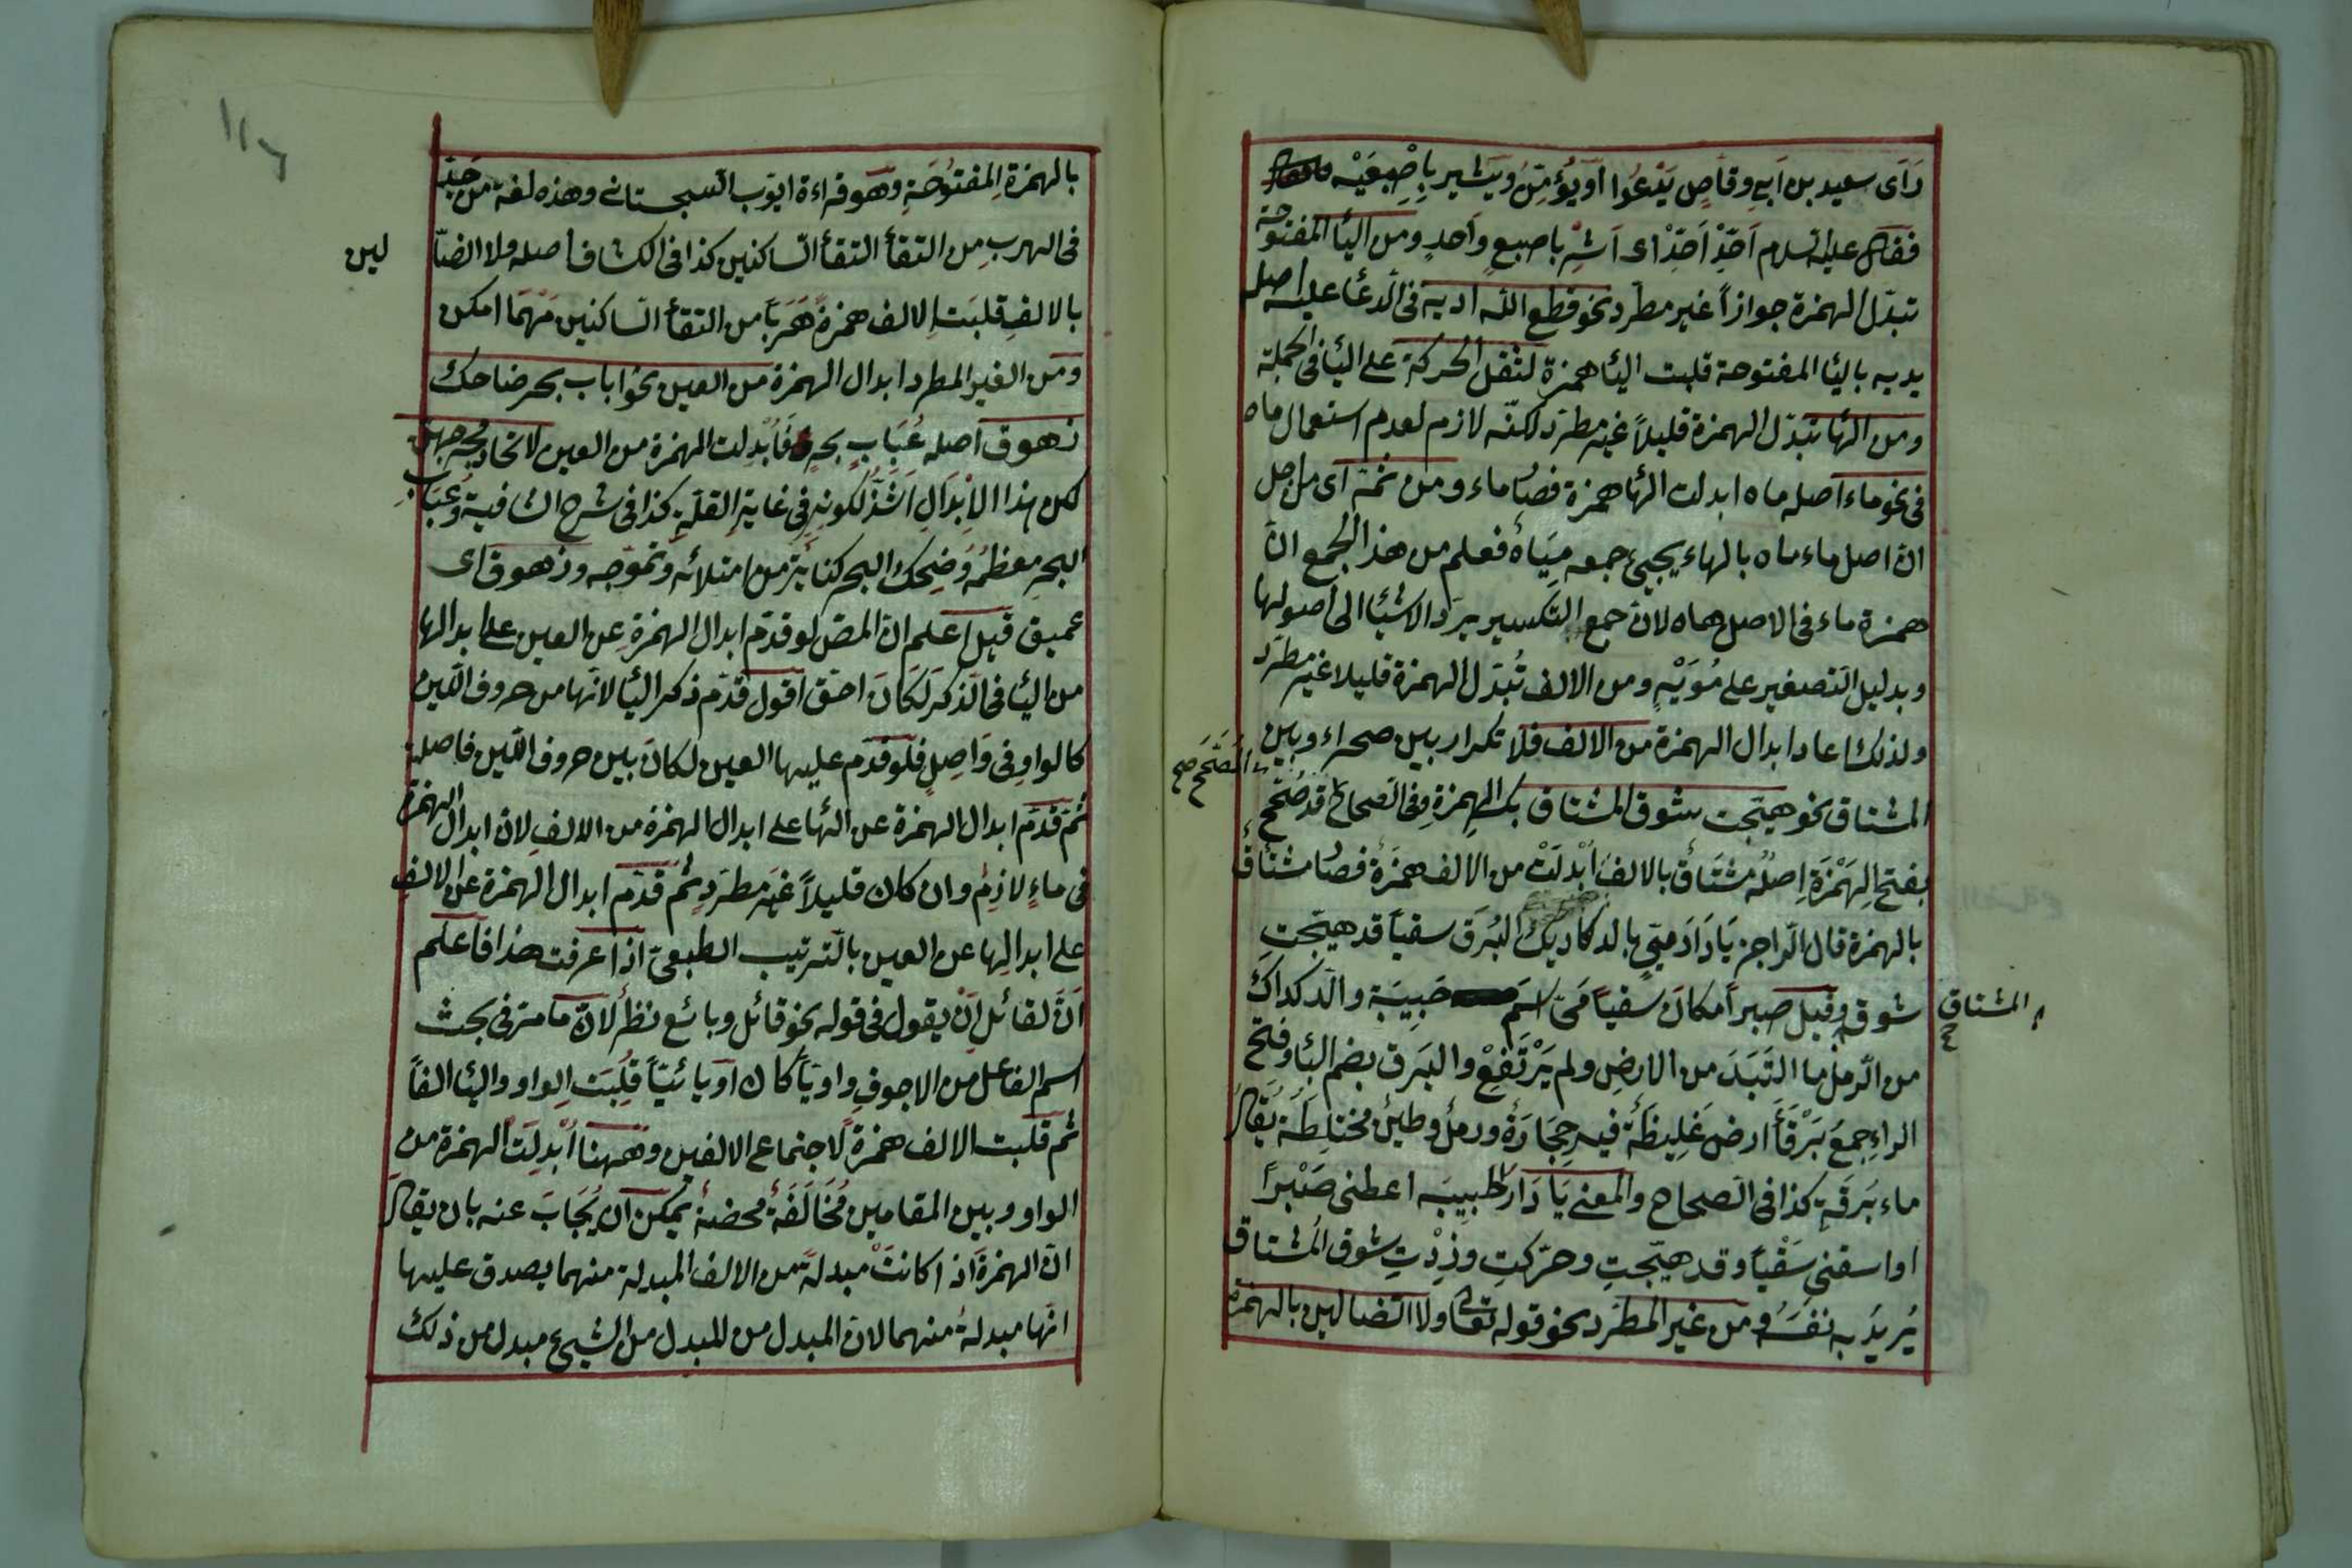 رَاَى سعيد بن اَبِي وقاص يَدْعُوا اَو يُؤمِنُ ويَشير بِاِصْبِعَيْه
فقال عليه السلام اَحِّدْ اَحِّدْ اى اَشِرْ باصبع واحدٍ ومن اليا المفتوحة
تبدّل الهمزة جوازاً غير مطرد نحو قطع اللّه اديه فى الدعا عليه اصله
يديه باليا المفتوحة قلبت اليا همزة لثقل الحركة على اليا فى الجملة
ومن الها تبدّل الهمزة قليلاً غير مطرد لكنّه لازم لعدم استعمال ماه
فى نحو ماء اصله ماه ابدلت الها همزة فصار ماء ومن ثمّه اى من اجل
انّ اصل ماء ماه بالهاء يجيئ جمعه مِيَاهُ فعلم من هذا الجمع انّ
همزة ماء فى الاصل هاه لانّ جمع التكسير يرد الاشيا الى اصولها
وبدليل التصغير على مُوَيْهٍ ومن الالف تُبدّل الهمزة قليلا غير مطرد
ولذلك اعاد ابدال الهمزة من الالف فلا تكرار بين صحراء وبين
المشتاق نحو هيّجت شوق المشتاق بكسر الهمزة وفى الصحاح قد صُحِّحَ
بفتح الهَمْزَةِ اصلُهُ مُشْتَاق بالالف اُبْدِلَتْ من الالف همزَةُ فصار مشتاق
بالهمزة قال الراجز يَا دَارَ مَيّ بالدكاديك البُرَق سقياً قد هيّجت
شوق وقيل صبراً مكان سقياً مَىّ اسم حَبِيبَة والدكداك
المشتاق
من الرّمل ما التَبَدَ من الارضِ ولم يَرْتَفِعْ والبَرق بضم البا وفتح
الراءِ جمعُ بَرْقَأ ارض غَلِيظَةُ فيه حِجَارَةُ ورمل وطين مختلِطَة يُقَالُ
ماء بَرقَةٍ كذا فى الصحاح والمعنى يَا دَارَ حَبِيبَه اعطنى صَبْراً
او اسقنى سَقْياً وقد هيّجتِ وحرّكتِ وزِدْتِ شوق المشتاق
يُرِيدُ به نفسَهُ ومن غير المُطَرد نحو قوله تعالى ولا الضالين بالهمزة
بالهمزةِ المفتوُحَةِ وهو قراءة ايّوب السجستانى وهذه لغة من جدّ
فى الهرب من التقأ التقأ الساكنين كذا فى الكشاف اصله ولا الضا
لين
بالالفِ قلبَت الالف همزةً هَرَباً من التقأ الساكنين مَهْمَا امكن
ومن الغير المطرد ابدال الهمزة من العين نحو اباب بحر ضاحك
زهوق اصله عُبَابِ بحرٍ فَاُبْدِلت الهمزة من العين لاتحاد مخرجهن
لكن هذا الاِبْدَالِ اَشَذُّ لكونه فى غاية القلّةِ كذا فى شرح الشافية وعُبَاب
البحرِ معظمُه وَضِحك البحر كناية من امتلائه وتموّجه وزهوق اى
عميق قيل اعلم انّ المصّ لو قدّم ابدال الهمزةِ عن العين على ابدالها
من اليا فى الذكر لَكَانَ احق اقول قدّم ذكر اليا لانّها من حروف اللّين
كالواوِ فى وَاصِلٍ فلو قدّم عليها العين لكانَ بين حروف اللّين فاصلة
ثمّ قدّم ابدال الهمزة عن الها على ابدال الهمزة من الالف لان ابدال الهمزة
فى ماءٍ لازم وان كان قليلاً غير مطرد ثم قدّم ابدال الهمزة عن الالف
على ابدالِها عن العين بالترتيب الطبعىّ اذا عرفت هذا فاعلم
اَنَّ لقائل اَنْ يقول فى قوله نحو قائل وبائع نظرٌ لانّ ما مرّ فى بحث
اسم الفاعل من الاجوفِ واويّاً كان اَو يائيّاً قلِبَت الواو واليا الفاً
ثم قلبت الالف همزةً لاجتماع الالفين وههنا اُبْدِلَت الهمزة من
الواو وبين المقامين مُخَالَفَةُ محضةُ يمكن ان يُجَابَ عنه بان يقال
انّ الهمزةَ اذا كانَتْ مبدلةً من الالف المبدلة منهما يصدق عليها
انّها مبدلةُ منهما لانّ المبدل من المبدل من الشيئ مبدل من ذلك